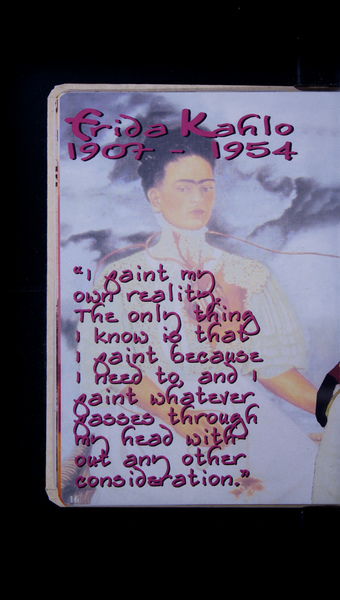 Frida Kahlo
1907 - 1954
"I paint my
own reality.
The only thing
I know is that
I paint because
I need to, and I
paint whatever
passes through
my head with-
out any other
consideration."
16